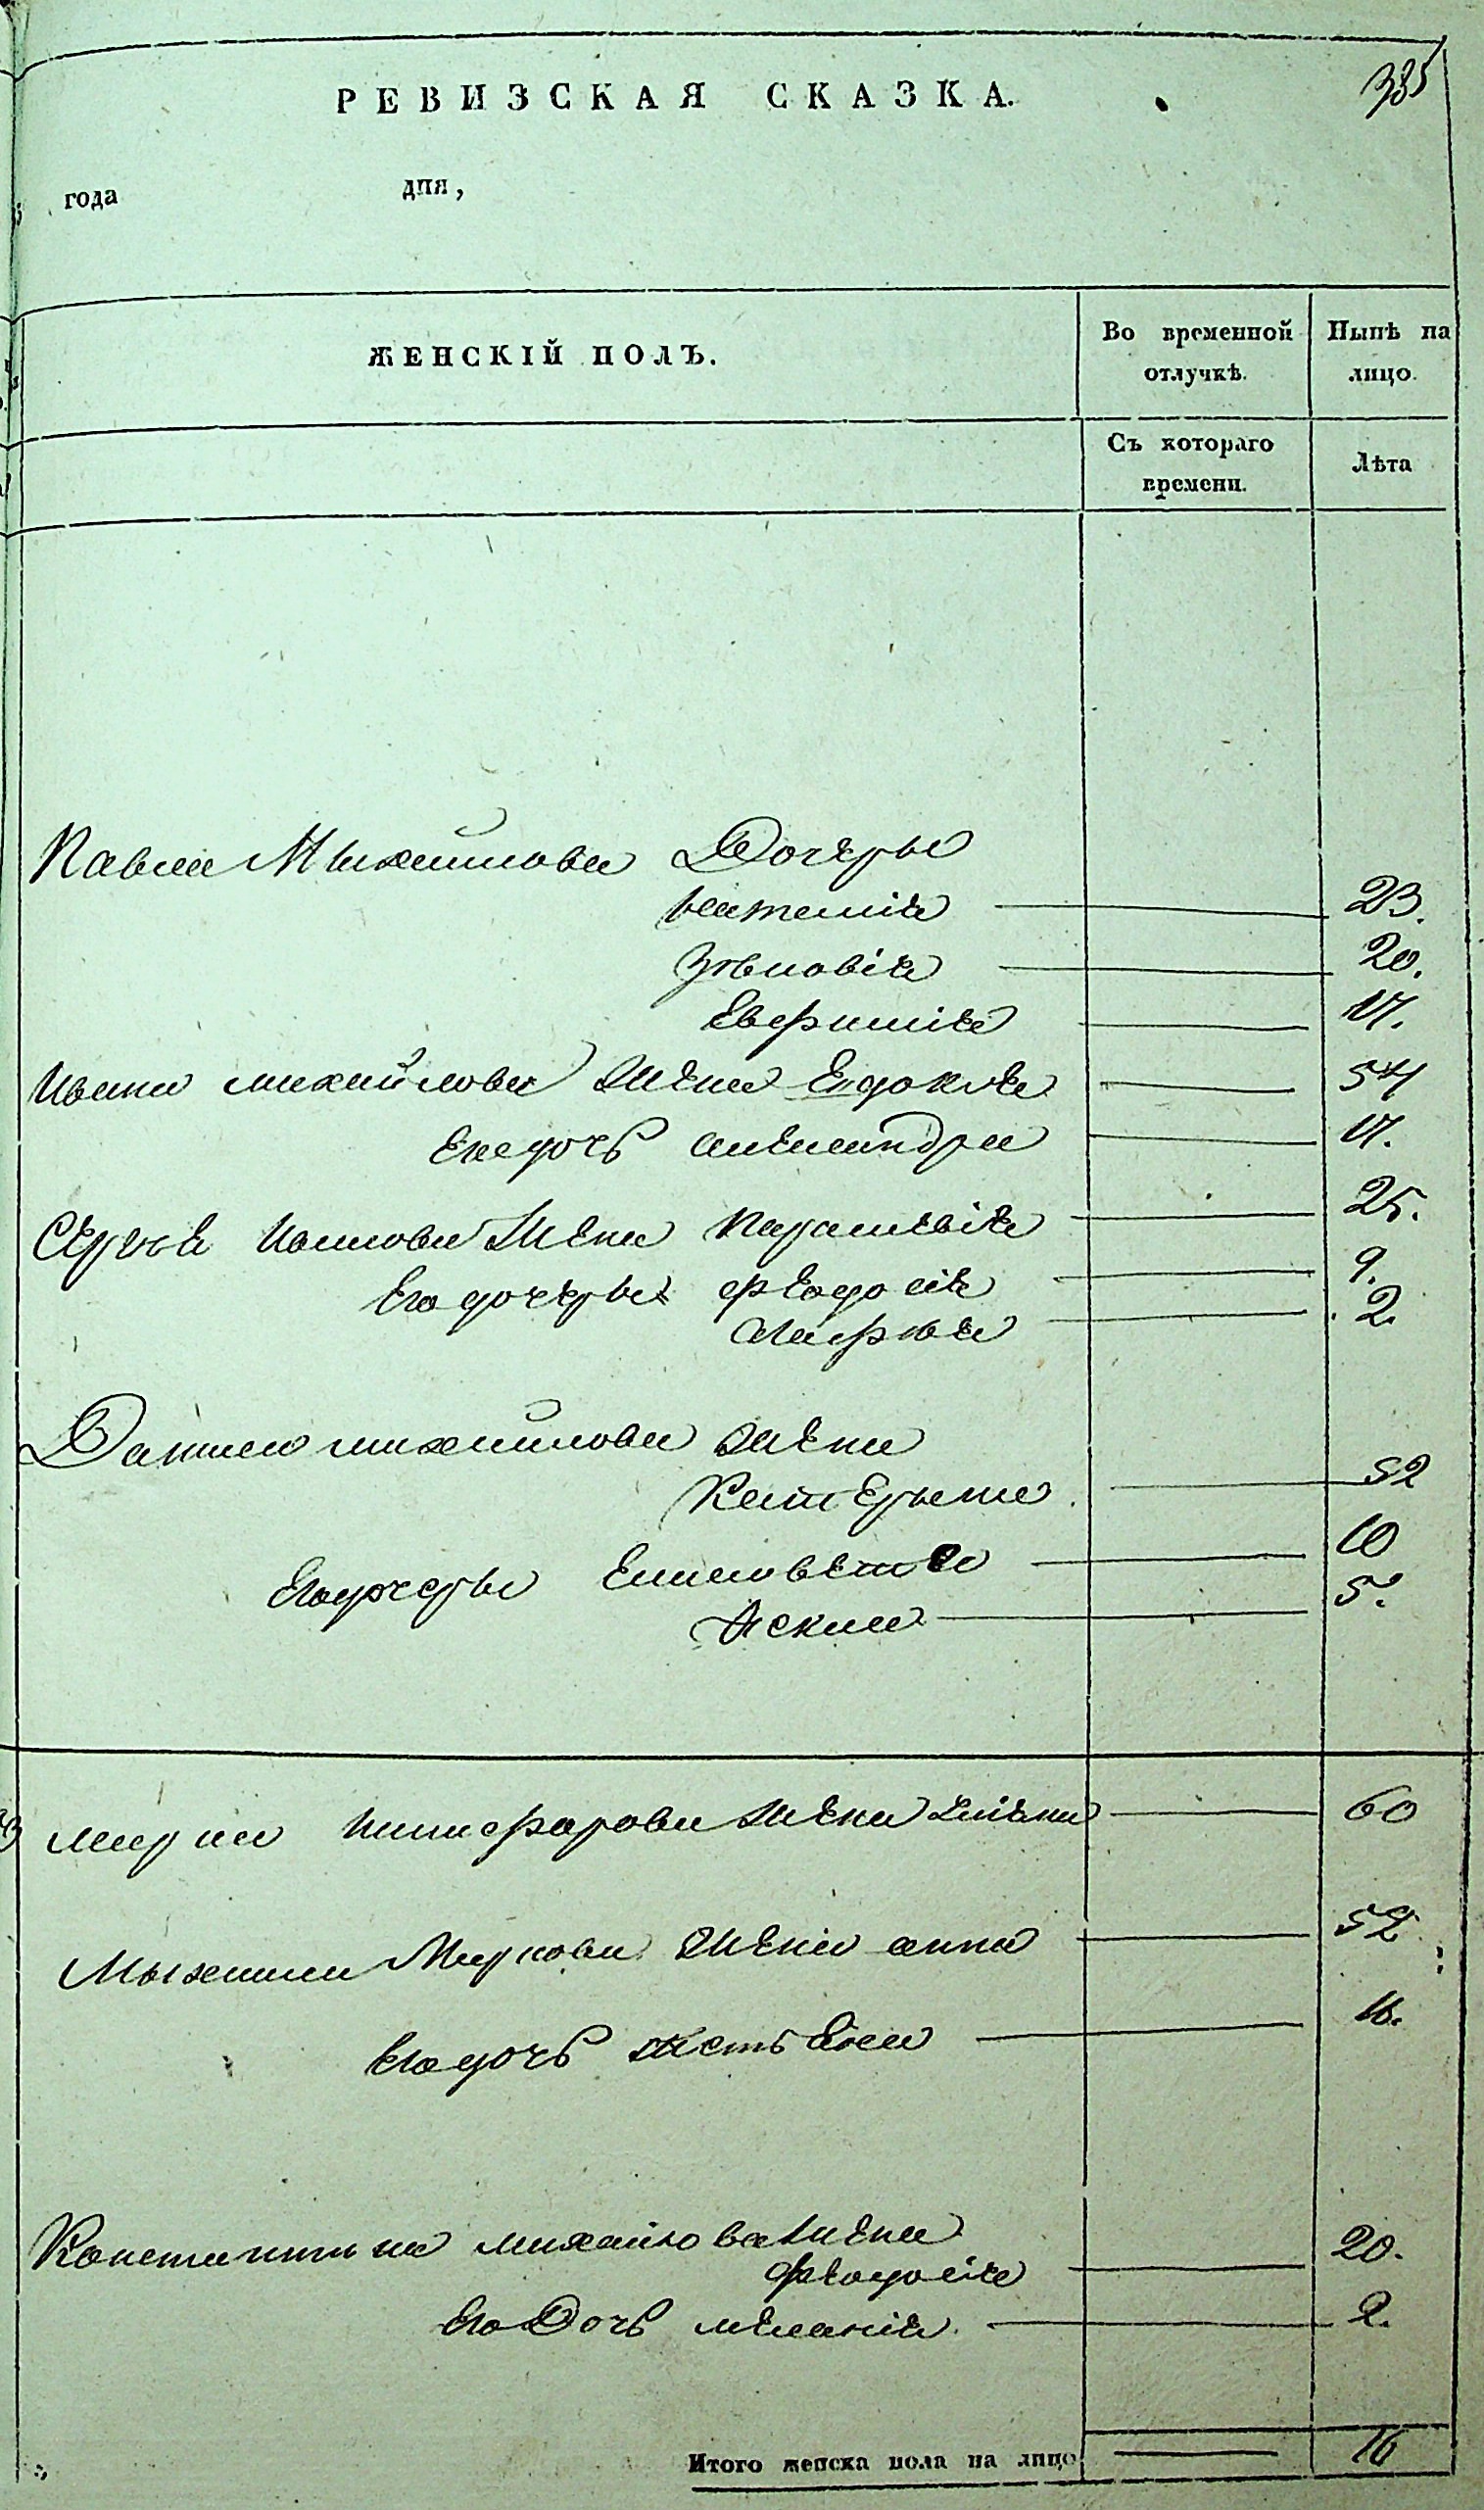 РЕВИЗСКАЯ СКАЗКА.
385
года дня,
ЖЕНСКІЙ ПОЛЪ.
Во временной отлучкѣ.
Нынѣ на лицо.
Съ котораго времени.
Лѣта
Павла Михайлова Дочеры
Наталия 23.
Зѣновія 20.
Евфимія 17.
Ивана михайлова жена Евдокея 54
Его дочь александра 17.
Сергея Иванова жена Параскевія 25.
Его дочеры феодосія 9.
Марфа 2.
Данила михайлова жена
Катерына 52
Его дочеры Елисавета 10
5.
Марка Никифорова жена 60
Михаила Маркова жена анна 52
Его дочь 16.
Константина михайлова жена
феодосія 20.
Его Дочь меланія 2.
Итого женска пола на лицо 16